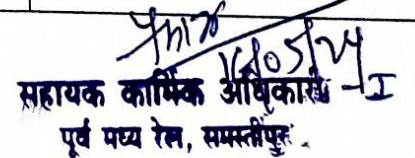 सहायक कार्मिक अधिकारी - I
पूर्व मध्य रेल, समस्तीपुर